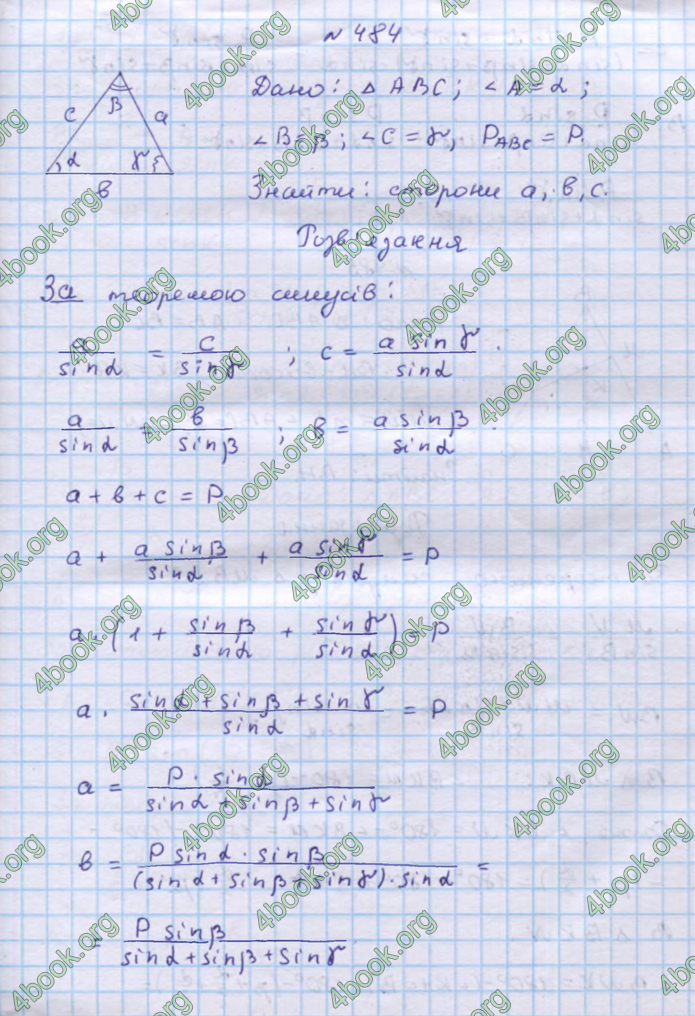 № 484
Дано: △ ABC; ∠A = α;
∠B = β; ∠C = γ, P_ABC = P.
Знайти: сторони а, в, с.
β
c
a
α
γ
в
Розв'язання
За теоремою синусів:
a / sin α = c / sin γ ; c = a sin γ / sin α .
a / sin α = в / sin β ; в = a sin β / sin α .
a + в + c = P
a + a sin β / sin α + a sin γ / sin α = P
a · (1 + sin β / sin α + sin γ / sin α) = P
a · (sin α + sin β + sin γ) / sin α = P
a = P · sin α / (sin α + sin β + sin γ)
в = P sin α · sin β / ((sin α + sin β + sin γ) · sin α) =
= P sin β / (sin α + sin β + sin γ)
4book.org